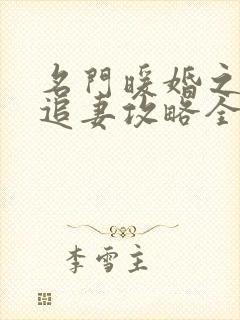 名門暖婚之
追妻攻略全
李雪主